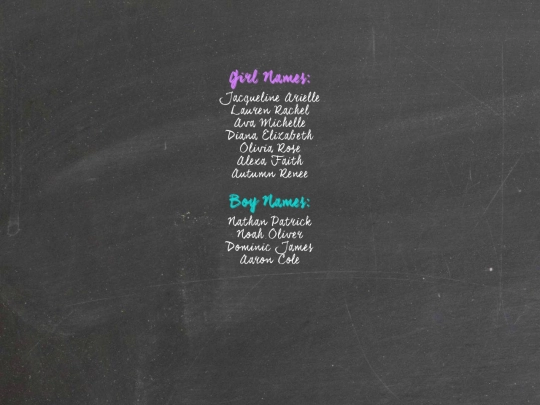 Girl Names:
Jacqueline Arielle
Lauren Rachel
Ava Michelle
Diana Elizabeth
Olivia Rose
Alexa Faith
Autumn Renee
Boy Names:
Nathan Patrick
Noah Oliver
Dominic James
Aaron Cole